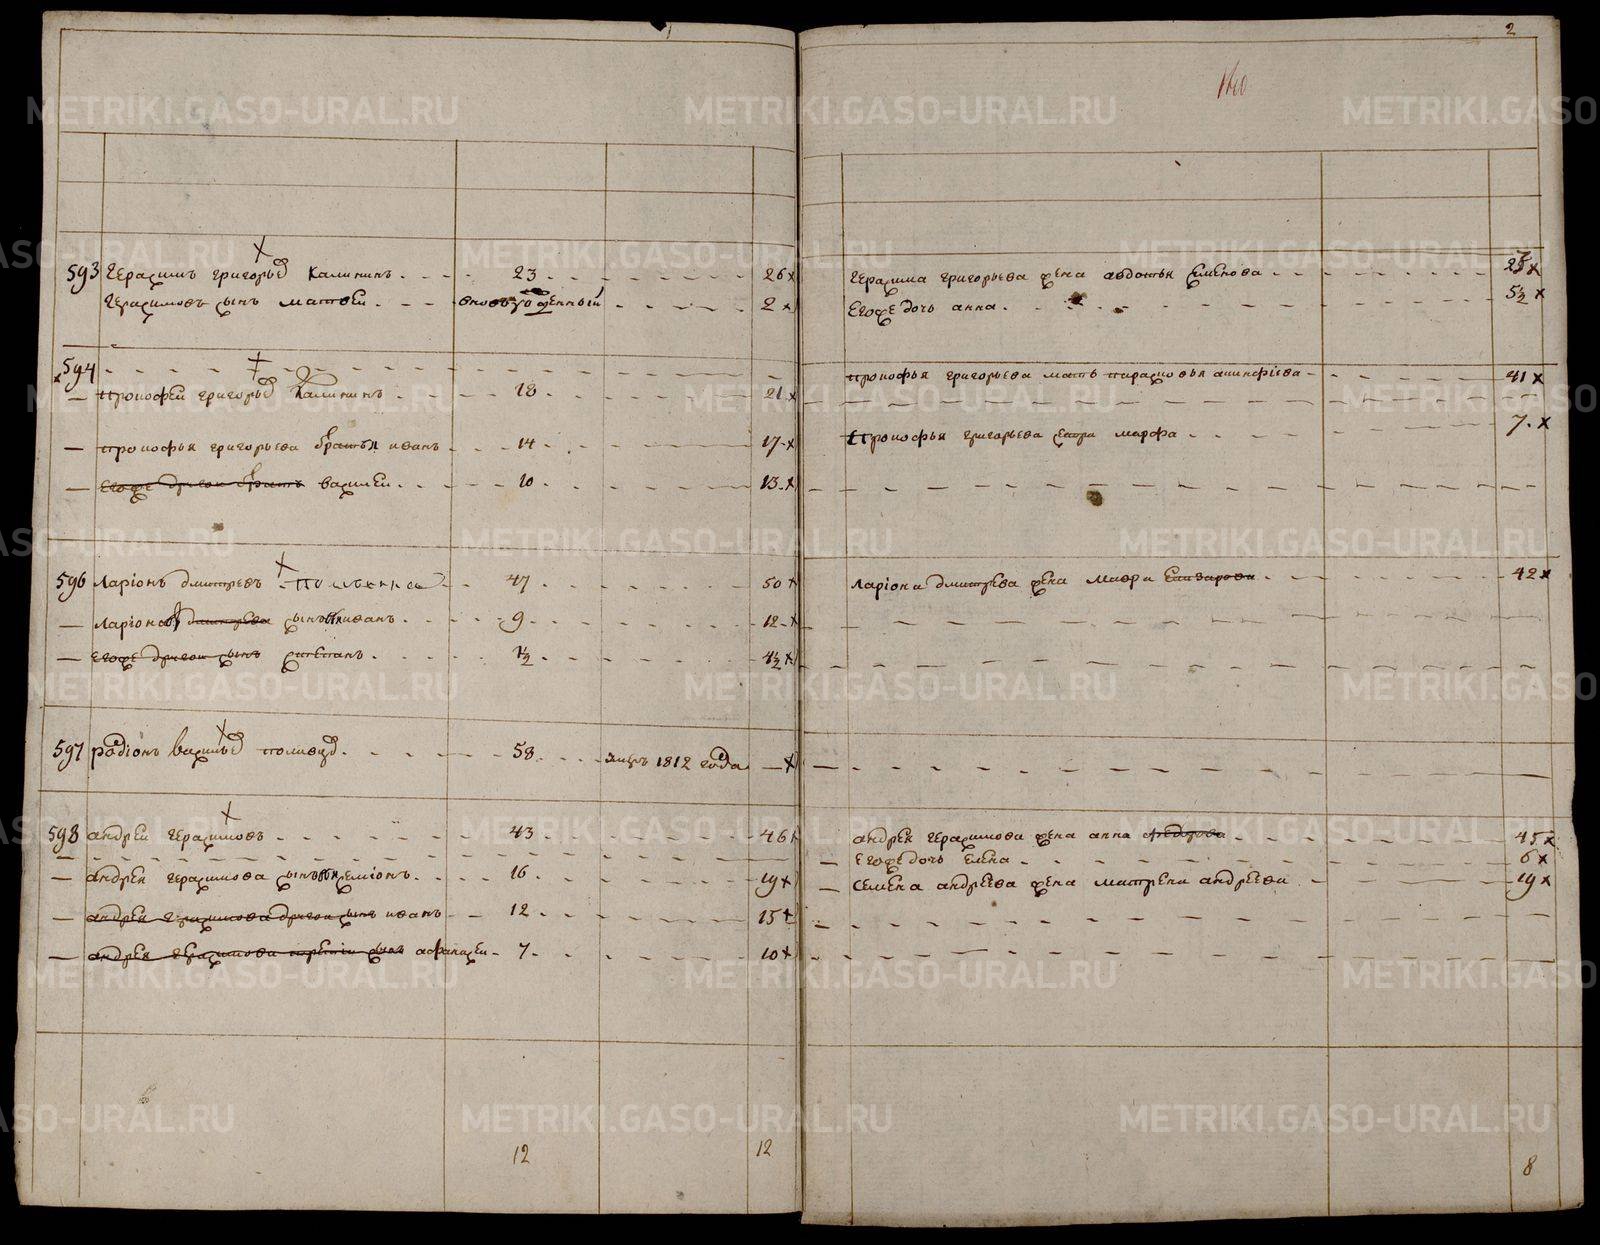 2
593 Герасимъ григорьевъ Калининъ 23 26
Герасимовъ сынъ матвеи вновь рожденный 2
594
прокофеи григорьевъ Калининъ 18 21
прокофья григорьева братья иванъ 14 17
Егоже другои братъ василеи 10 13
596 Ларіонъ дмитревъ 47 50
Ларіоновы дмитрева сынъ иванъ 9 12
Егоже другои сынъ степанъ 1½ 4½
597 родіонъ васильевъ 58 1812 года
598 андреи герасимовъ 43 46
андрея герасимова сынъ 16 19
андрея герасимова другои сынъ иванъ 12 15
андрея герасимова третіи сынъ афанасеи 7 10
12 12
Герасима григорьева жена авдотья семенова
Егоже дочь анна 5½
прокофья григорьева мать парасковья 41
прокофья григорьева сестра марфа 7
Ларіона дмитрева жена мавра 42
андрея герасимова жена анна федорова 45
Егоже дочь елена 6
семена андреева жена матрена андреева 19
8
METRIKI.GASO-URAL.RU